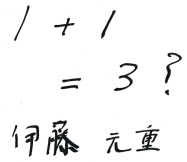 1 + 1
= 3 ?
伊藤 元重